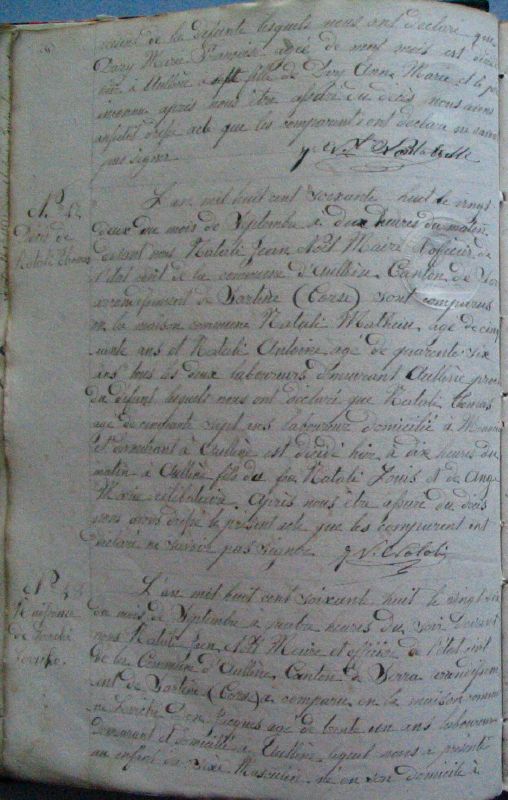 de la défunte lesquels nous ont déclaré que
Dary Marie Françoise agée de neuf mois est
à Aullène fille de Dary Anne Marie et de père
inconnu après nous être assuré du décès nous avons
dressé acte que les comparants ont déclaré ne savoir
pas signer
J. N. Natali
N° 42
Décès de
Natali Thomas
L'an mil huit cent soixante huit le vingt
deux du mois de Septembre à deux heures du matin
devant nous Natali Jean Noël Maire Officier de
l'état civil de la commune d'Aullène Canton de Serra
arrondissement de Sartène (Corse) sont comparus
en la maison commune Natali Mathieu agé de cinq
uante ans et Natali Antoine agé de quarante six
ans tous les deux laboureurs demeurant Aullène
du défunt, lesquels nous ont déclaré que Natali Thomas
agé de cinquante sept ans laboureur domicilié à
et demeurant à Aullène est décédé hier à dix heures du
matin à Aullène fils du feu Natali Louis et de Ange
Marie célibataire. Après nous être assuré du décès
nous avons dressé le présent acte que les comparant ont
déclaré ne savoir pas signer J. N. Natali
N° 43
Naissance
de
L'an mil huit cent soixante huit le vingt six
du mois de Septembre à quatre heures du soir devant
nous Natali Jean Noël Maire et officier de l'état civil
de la Commune d'Aullène Canton de Serra arrondissem
ent de Sartène (Corse) a comparu en la maison commu
ne Jacques agé de trente un ans laboureur
demeurant et domicilié à Aullène lequel nous a présenté
un enfant du sexe Masculin né en son domicile à